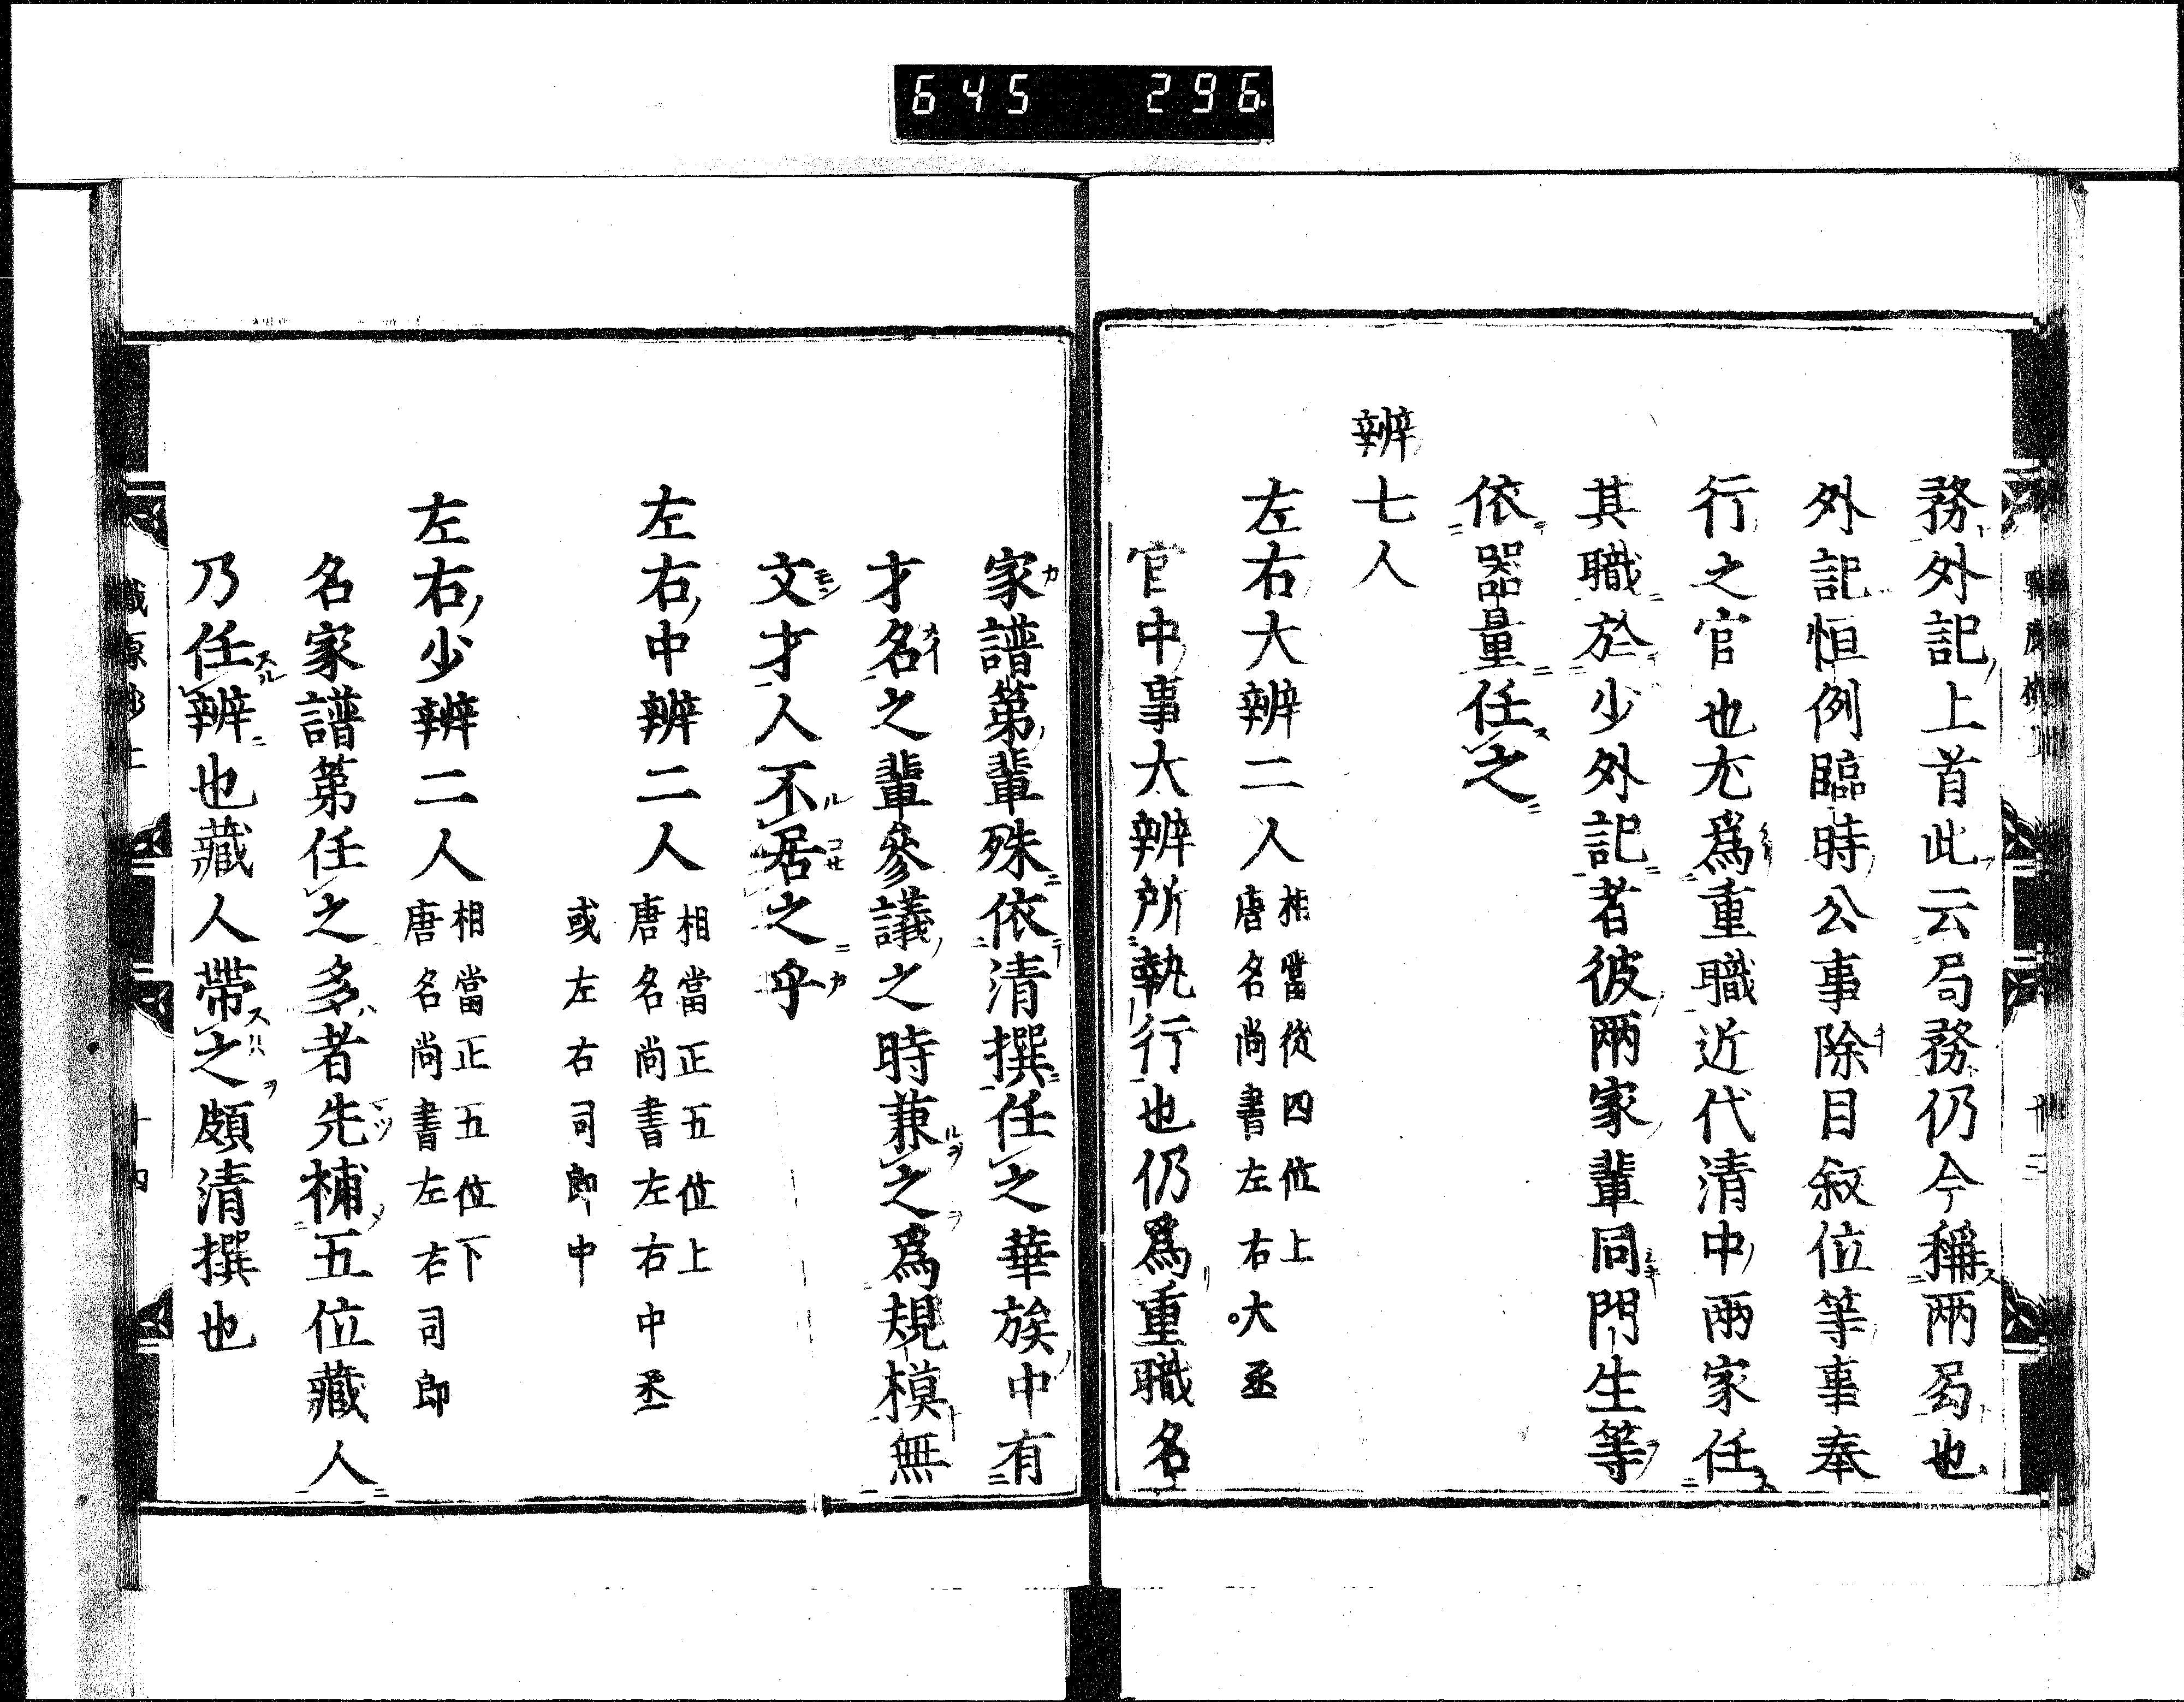 645 296
務外記上首此云局務仍今稱兩局也
外記恒例臨時公事除目叙位等事奉
行之官也尤爲重職近代清中兩家任
其職於少外記者彼兩家輩同門生等
依器量任之
辨七人
左右大辨二人
相當從四位上
唐名尚書左右大丞
官中事大辨所執行也仍爲重職名
家譜第輩殊依清撰任之華族中有
才名之輩參議之時兼之爲規模無
文才人不居之乎
左右中辨二人
相當正五位上
唐名尚書左右中丞
或左右司郎中
左右少辨二人
相當正五位下
唐名尚書左右司郎
名家譜第任之多者先補五位藏人
乃任辨也藏人帶之頗清撰也